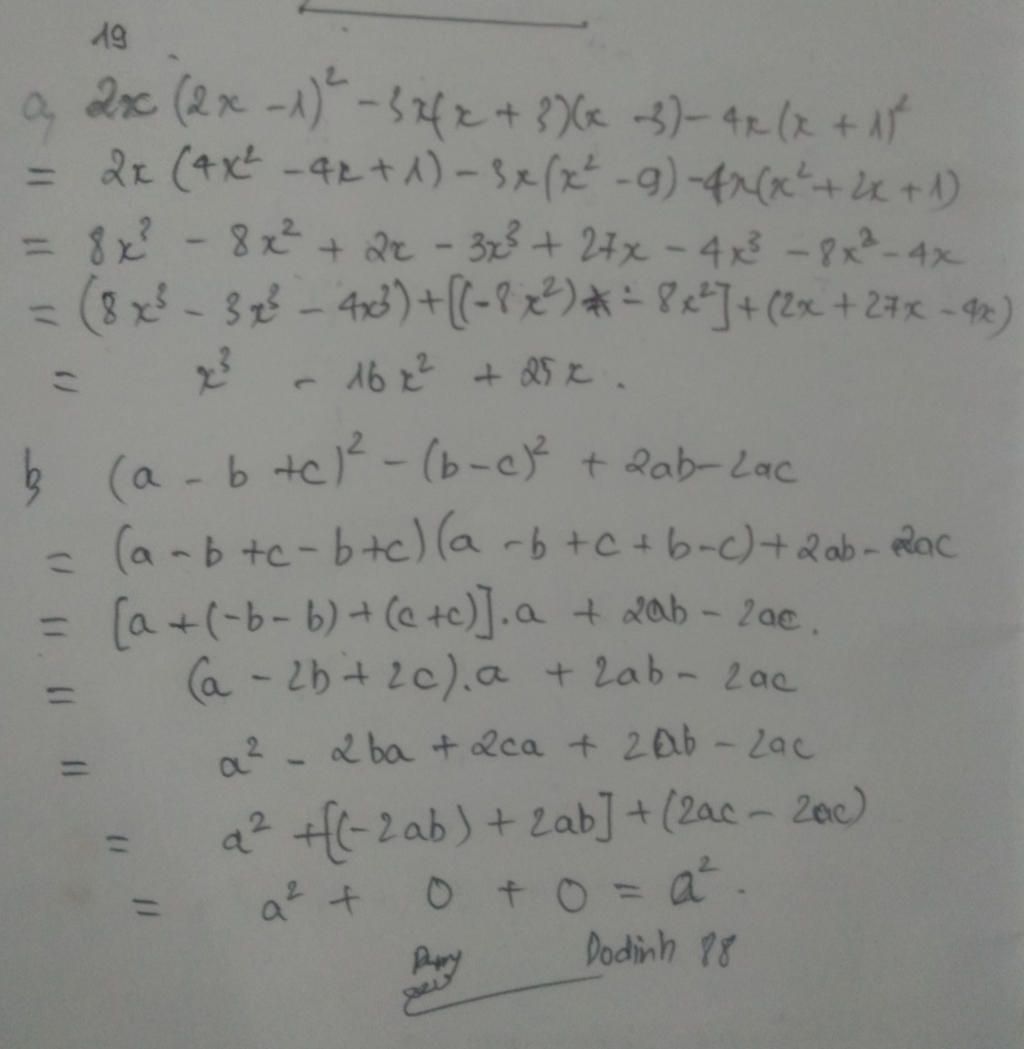 19
a, 2x (2x - 1)² - 3x(x + 3)(x - 3) - 4x(x + 1)²
= 2x (4x² - 4x + 1) - 3x(x² - 9) - 4x(x² + 2x + 1)
= 8x³ - 8x² + 2x - 3x³ + 27x - 4x³ - 8x² - 4x
= (8x³ - 3x³ - 4x³) + [(-8x²) - 8x²] + (2x + 27x - 4x)
= x³ - 16x² + 25x.
b, (a - b + c)² - (b - c)² + 2ab - 2ac
= (a - b + c - b + c)(a - b + c + b - c) + 2ab - 2ac
= [a + (-b - b) + (c + c)].a + 2ab - 2ac.
= (a - 2b + 2c).a + 2ab - 2ac
= a² - 2ba + 2ca + 2ab - 2ac
= a² + [(-2ab) + 2ab] + (2ac - 2ac)
= a² + 0 + 0 = a².
Dodinh 88